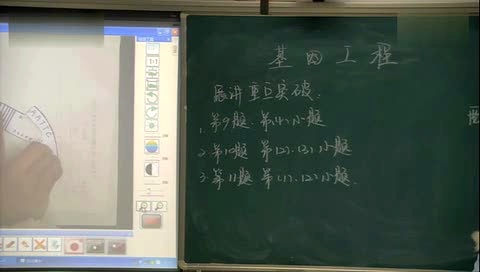 基因工程
展讲重点突破:
1. 第9题 第(4)小题
2. 第10题 第(2)、(3)小题
3. 第11题 第(1)、(2)小题.
AATTC
1:1